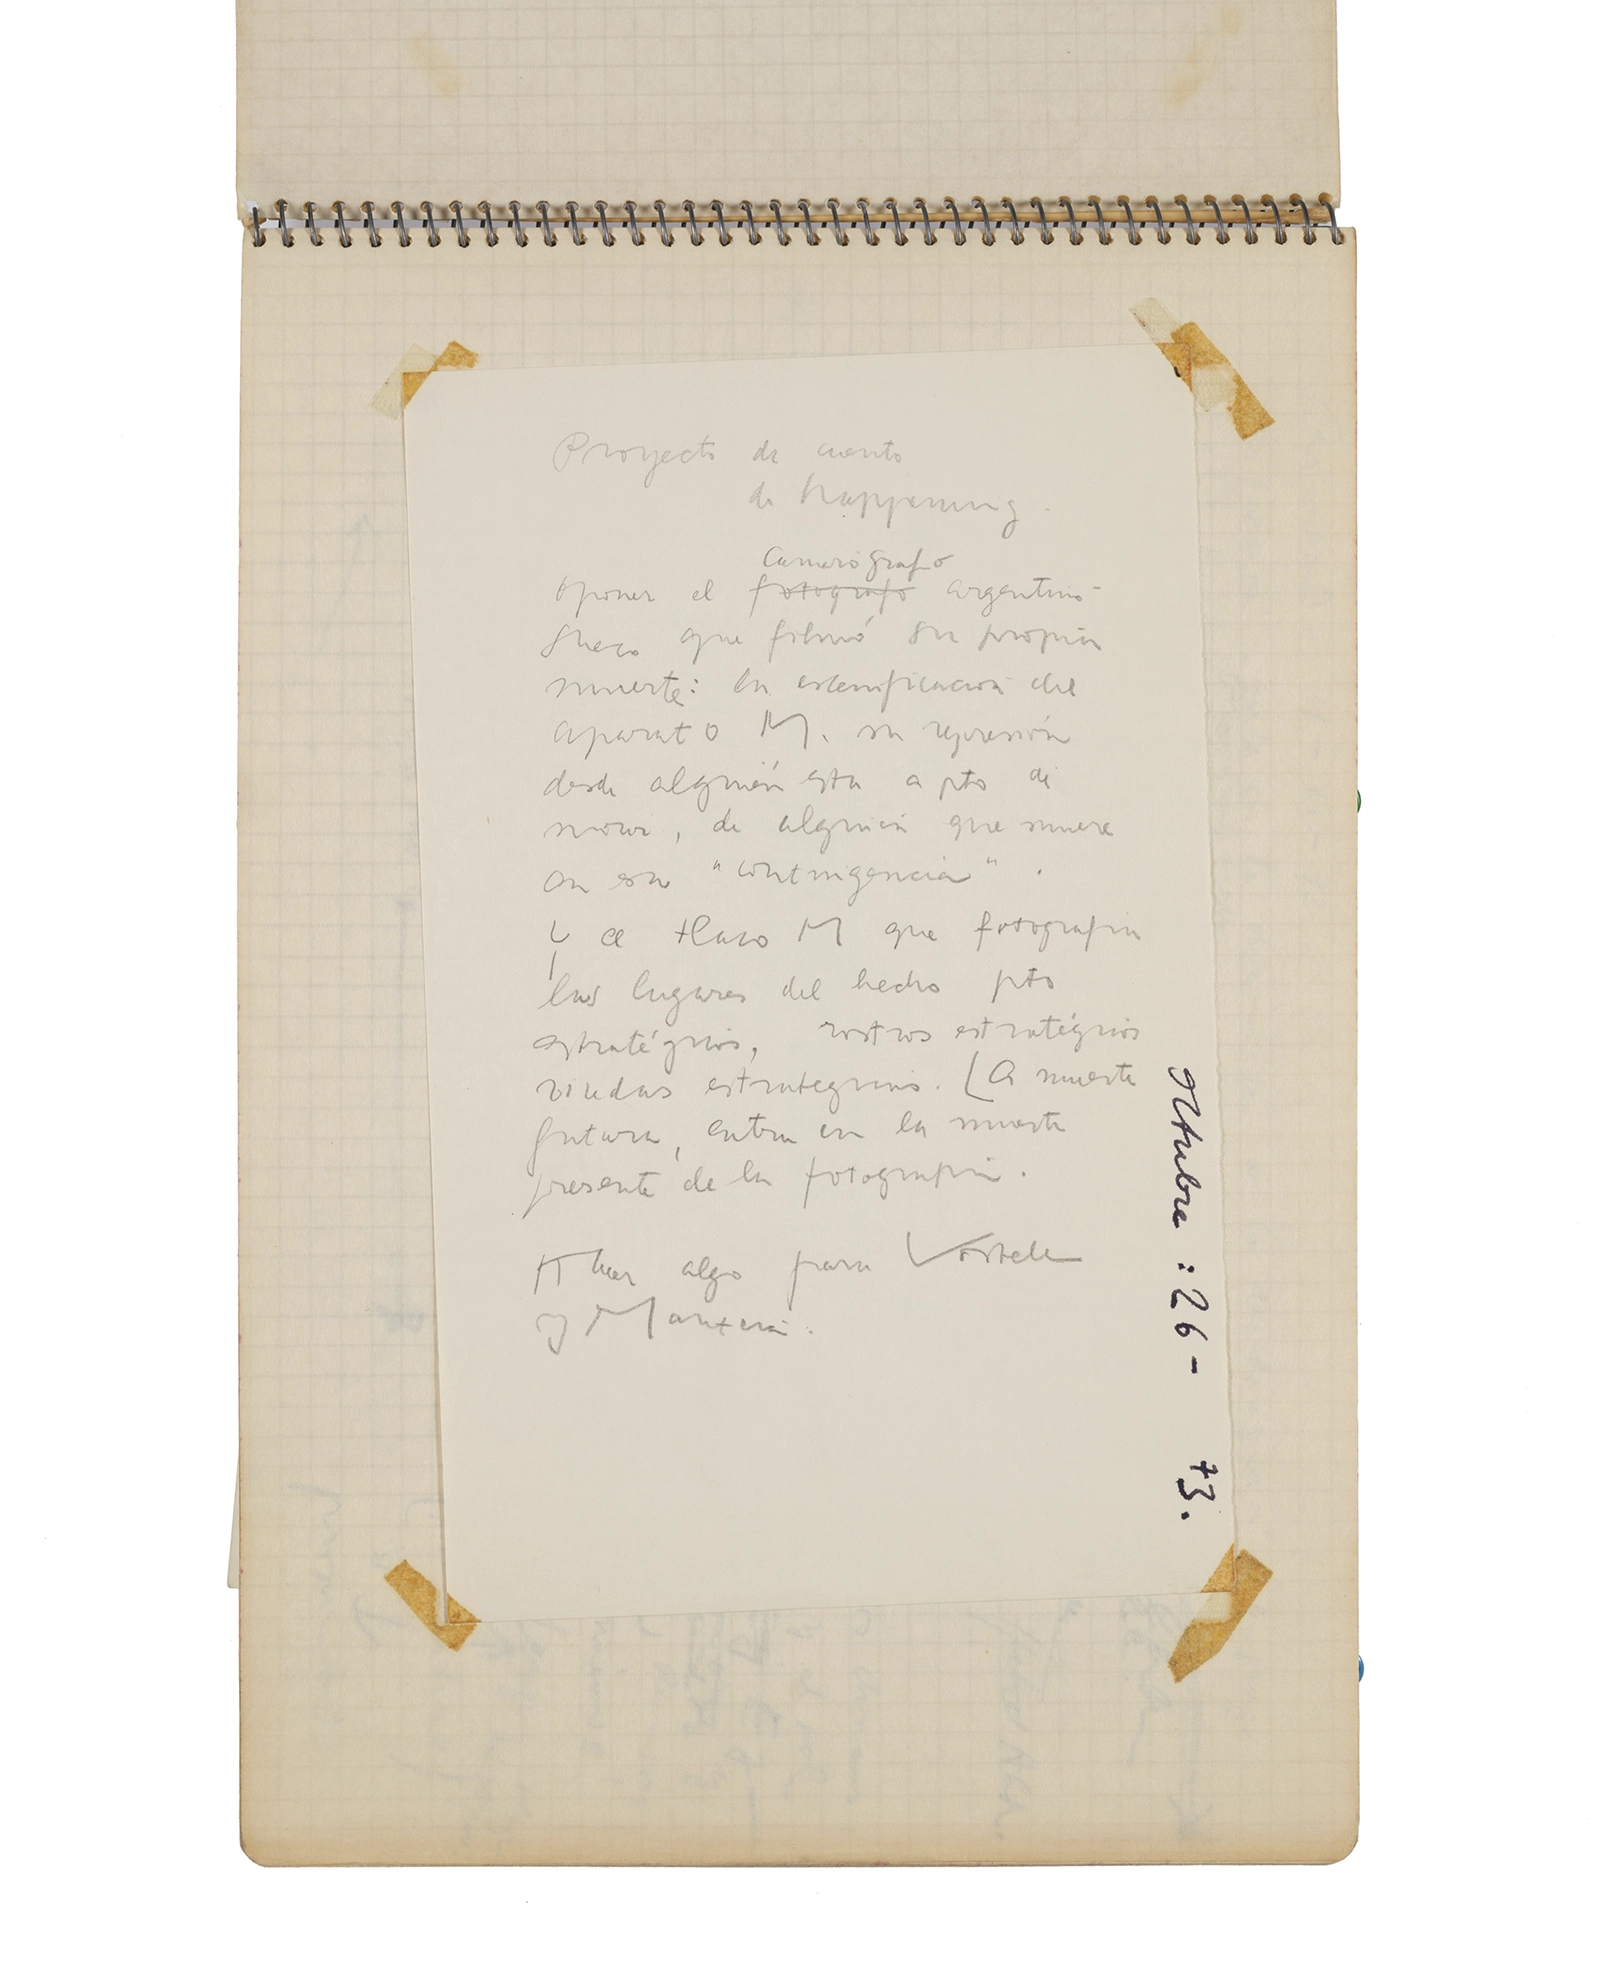 Proyecto de cuento
de happening.
camarógrafo
oponer el fotografo argentino-
Sueco que filmó su propia
muerte: la escenificación del
aparato M. su represión
desde alguién esta a pto de
morir, de alguien que muere
en esa "contingencia".
y al M que fotografia
los lugares del hecho pto
estratégicos, rostros estratégicos
viudas estrategicas. (la muerte
futura, entra en la muerte
presente de la fotografia.
Hacer algo para Vostell
y
Octubre : 26 - 73.